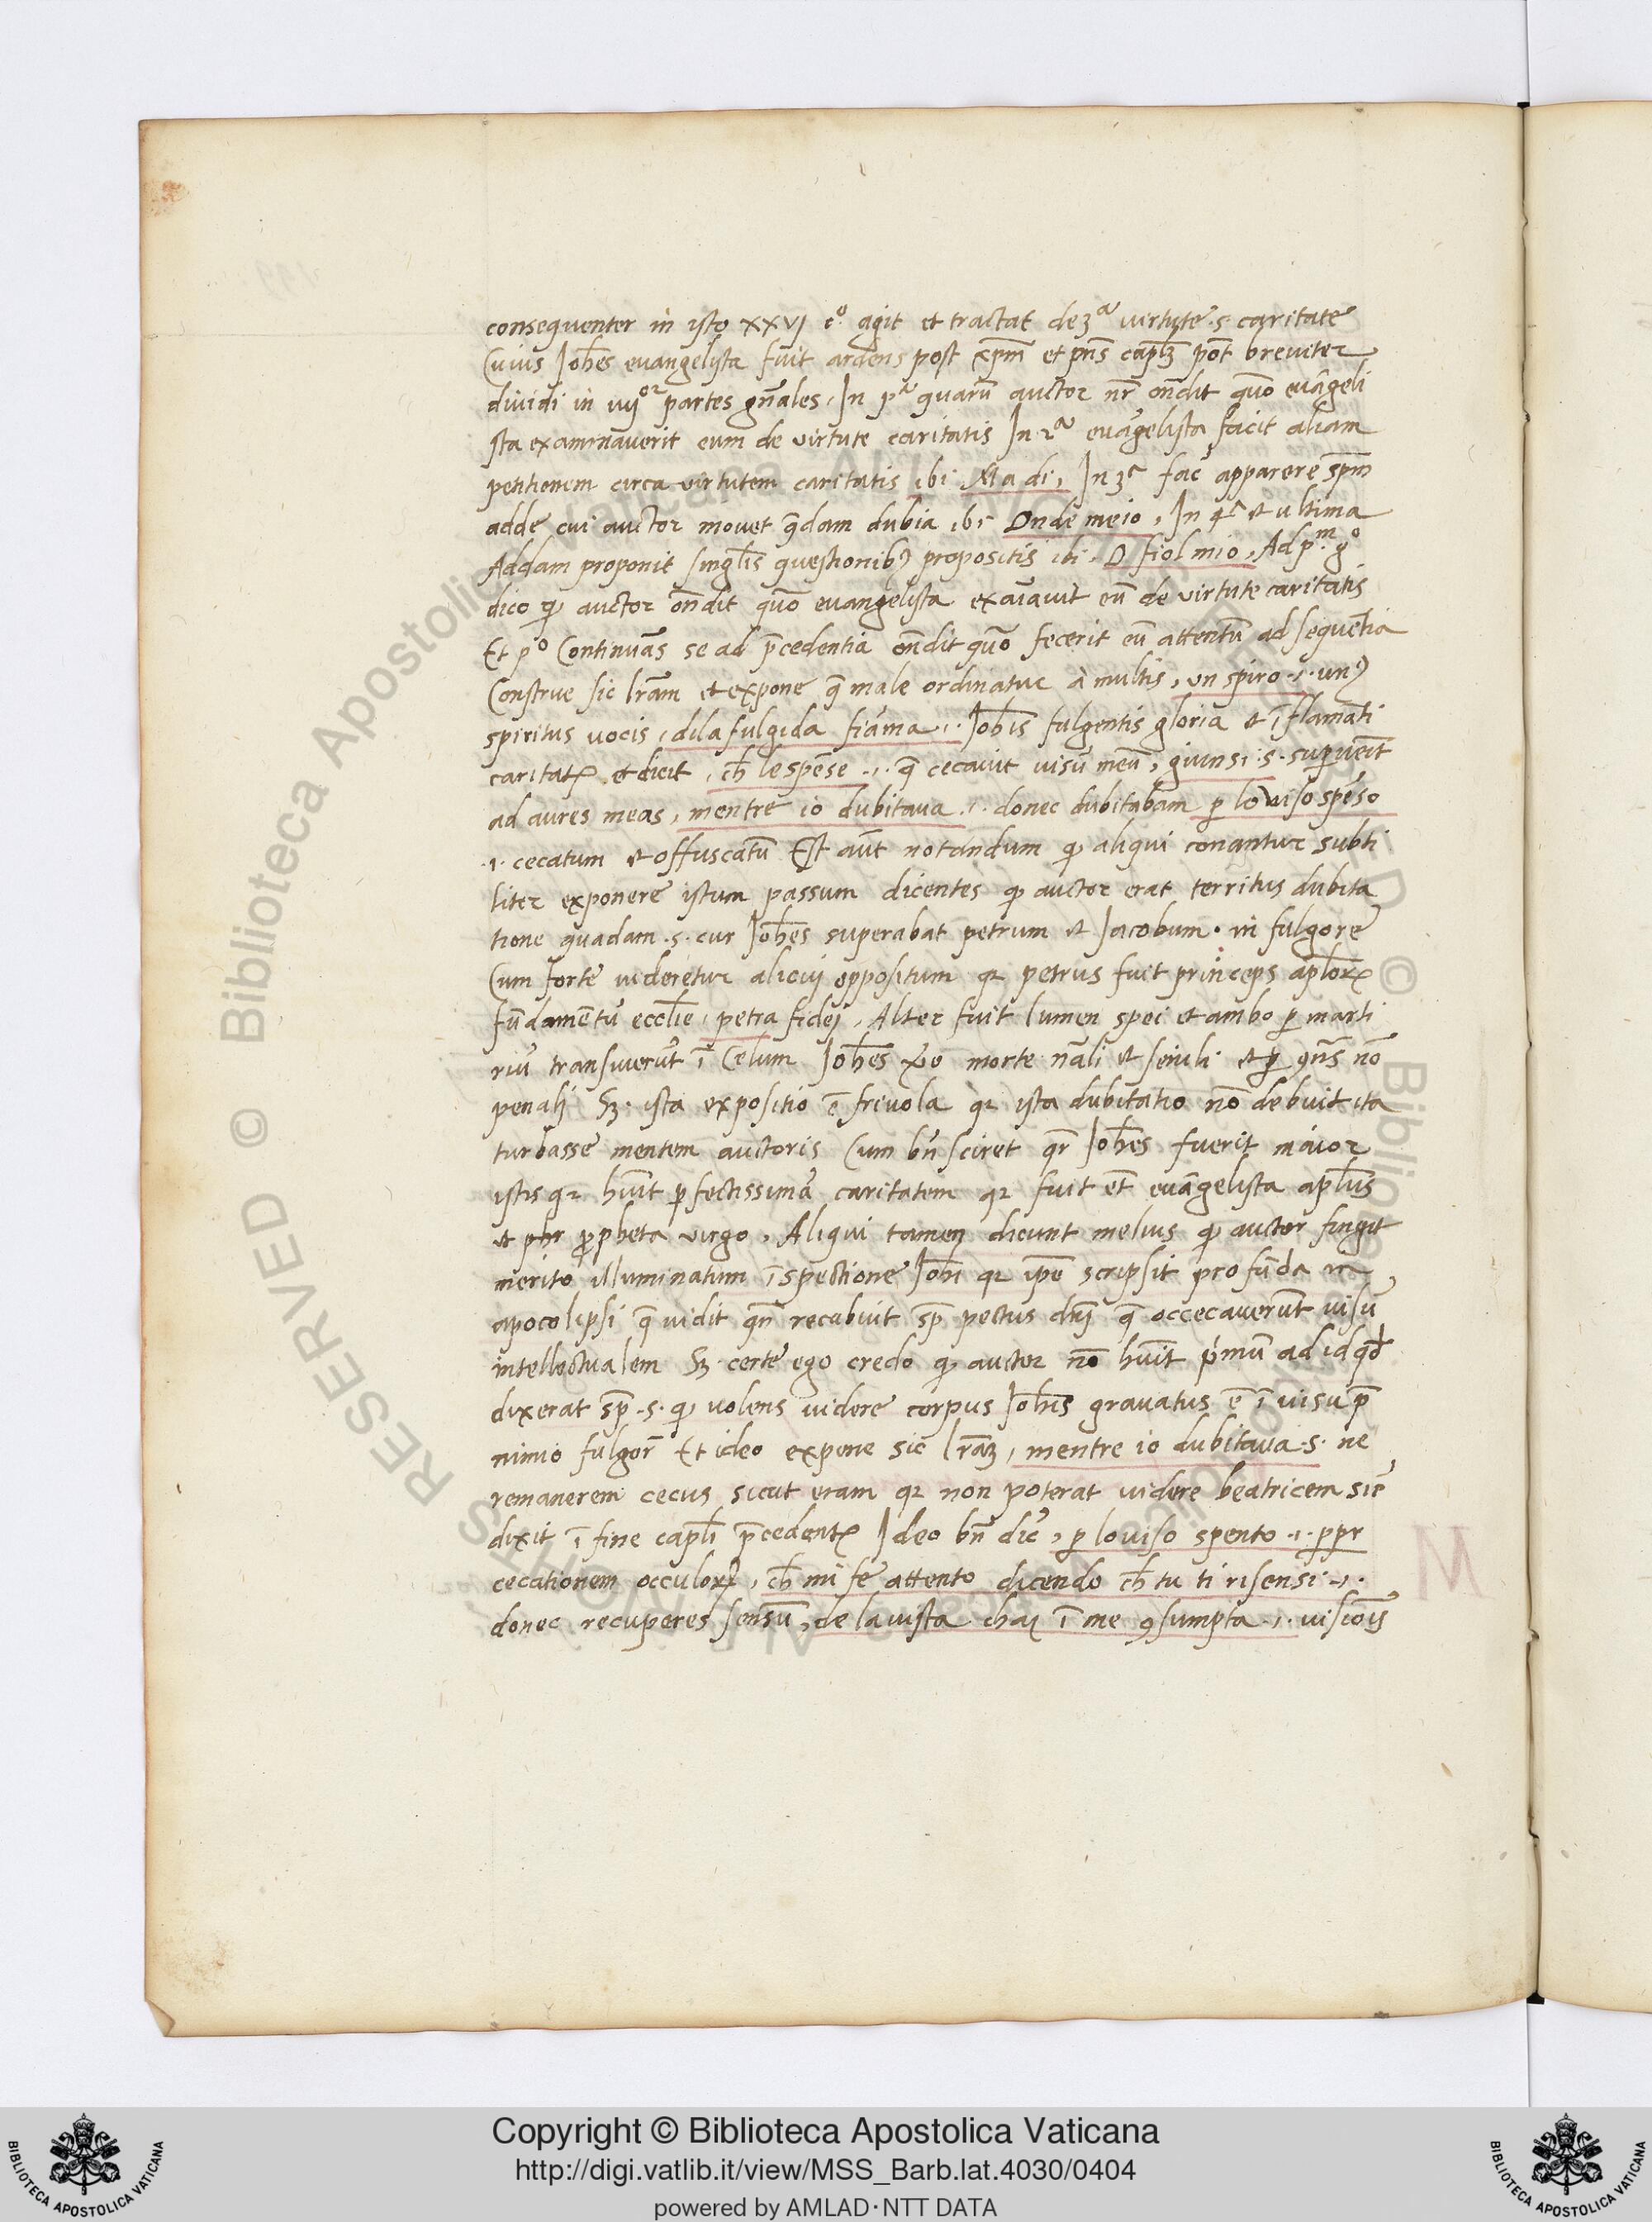 consequenter in isto XXVI cº. agit et tractat de 3ª virtute .s. caritate
Cuius Joh̄es evangelista fuit ardens post xp̄m et pn̄s capl̄ꝫ pōt breviter
dividi in iiijᵒʳ partes gn̄ales, In pª quarū auctor nr̄ on̄dit quō evāgeli
sta examinaverit eum de virtute caritatis In 2ª evāgelista facit aliam
petitionem circa virtutem caritatis ibi Ma di, In 3ª fac̄ apparere sp̄m
adde cui auctor movet q̄dam dubia ibi Onde meio, In 4ª et ultima
Addam proponit singl̄is questionibꝫ propositis ibi. O fiol mio, Ad pᵐ gº
dico ꝙ auctor on̄dit quō evangelista exaīavit eū de virtute caritatis
Et pº Continuās se ad p̄cedentia on̄dit quō fecerit eū attentū ad sequētia
Construe sic lr̄am et expone q̄ male ordinatur à multis, un spiro .i. unꝰ
spiritus vocis, dila fulgida fiāma .i. Joh̄is fulgentis gloria et īflamāti
caritatꝫ et dicit, ch̄ le spēse .i. q̄ cecavit visū meū, giunsi .s. supvēit
ad aures meas, mentre io dubitava .i. donec dubitabam ꝑ lo viso spēso
.i. cecatum et offuscatū Est aūt notandum ꝙ aliqui conantur subti
liter exponere istum passum dicentes ꝙ auctor erat territus dubita
tione quadam .s. cur Joh̄es superabat petrum et Jacobum. in fulgore
Cum forte videretur alicui oppositum qꝛ petrus fuit princeps apl̄orꝫ
fūdamentū eccl̄ie, petra fidei, Alter fuit lumen spei et ambo ꝑ marti
riū transiverūt ī Celum Joh̄es ꝟo morte nāli et seiuli et ꝑ ꝯn̄s nō
penali Sꝫ. ista expositio ē frivola qꝛ ista dubitatio nō debuit ita
turbasse mentem auctoris Cum bn̄ sciret qr̄ Joh̄es fuerit maior
istis qꝛ hūit ꝑfectissimā caritatem qꝛ fuit et̄ evāgelista apl̄us
et phr ꝓpheta virgo, Aliqui tamen dicunt melius ꝙ auctor fingit
merito illuminatum īspectione Joh̄i qꝛ ip̄e scripsit profūda in
apocolipsi q̄ vidit qn̄ recubuit sp̄ pectus dn̄j q̄ occecaverūt visū
intellectualem Sꝫ. certe ego credo ꝙ auctor nō hūit pʳmū ad id qđ
dixerat sp̄ .s. ꝙ volens videre corpus Joh̄is gravatus ē ī visu p̄
nimio fulgor̄ Et ideo expone sic lr̄aꝫ, mentre io dubitava .s. ne
remanerem cecus sicut eram qꝛ non poterat videre beatricem sic̄
dixit ī fine capl̄i p̄cedentꝫ Ideo bn̄ dic̄, ꝑ lo viso spento .i. ppr
cecationem occulorꝫ, ch̄ mi fe attento dicendo ch̄ tu ti risensi .i.
donec recuperes sensū, de la vista chai ī me ꝯsumpta .i. visiōis
Copyright © Biblioteca Apostolica Vaticana
http://digi.vatlib.it/view/MSS_Barb.lat.4030/0404
powered by AMLAD·NTT DATA
BIBLIOTECA APOSTOLICA VATICANA
BIBLIOTECA APOSTOLICA VATICANA